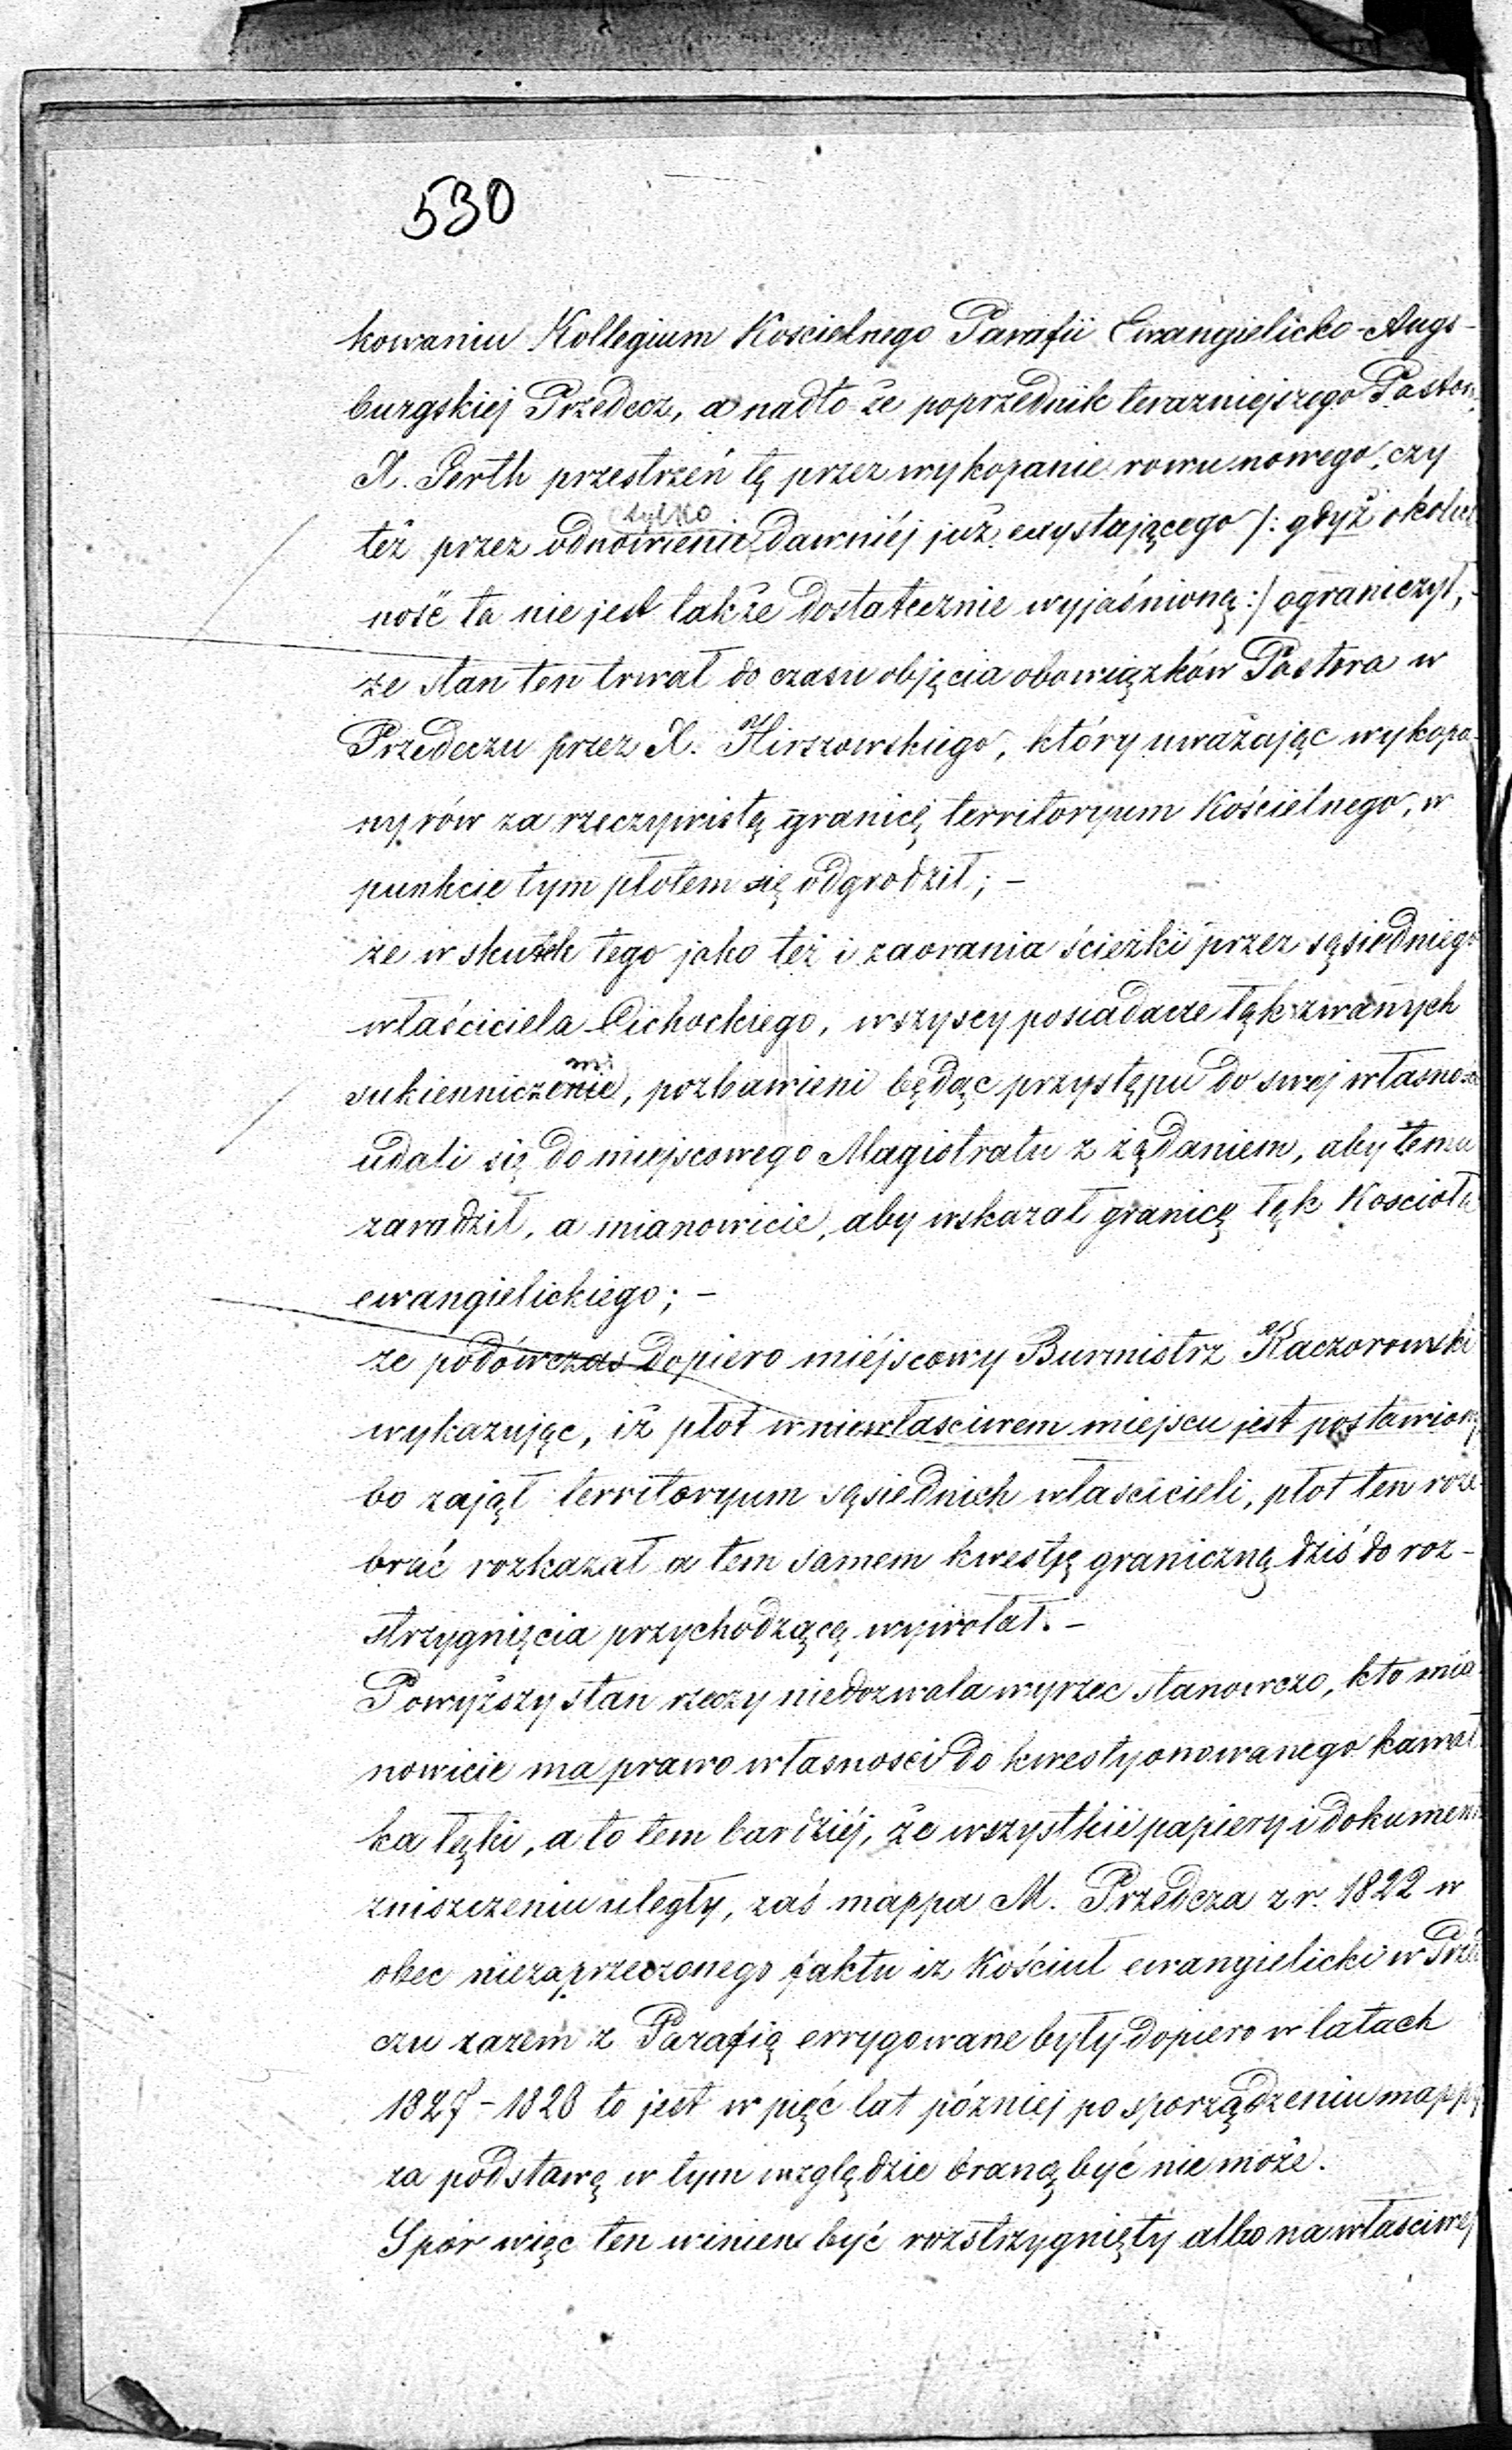 530
kowaniu Kollegium Kościelnego Parafii Ewangielicko-Augs-
burgskiej Przedecz, a nadto że poprzednik teraźniejszego Pastora
X. Gerth przestrzeń tę przez wykopanie rowu nowego, czy
tylko
też przez odnowienie dawniéj już exystającego /: gdyż okolicz
ność ta nie jest także dostatecznie wyjaśnioną :/ ograniczył, -
że stan ten trwał do czasu objęcia obowiązków Pastora w
Przedeczu przez X. Hirszowskiego, który uważając wykopa-
ny rów za rzeczywistą granicę territoryum Kościelnego, w
punkcie tym płotem się odgrodził; -
że w skutek tego jako też i zaorania ścieżki przez sąsiedniego
właściciela Cichockiego, wszyscy posiadacze łąk zwanych
mi
sukienniczenie, pozbawieni będąc przystępu do swej własnoś
udali się do miejscowego Magistratu z żądaniem, aby temu
zaradził, a mianowicie, aby wskazał granicę łąk Kościoła
ewangielickiego; -
że podówczas dopiero miéjscowy Burmistrz Kaczorowski
wykazując, iż płot w niewłaściwem miejscu jest postawiony
bo zajął territoryum sąsiednich właścicieli, płot ten roze-
brać rozkazał a tem samem kwestję graniczną dziś do roz-
strzygnięcia przychodzącą wywołał. -
Powyższy stan rzeczy niedozwala wyrzec stanowczo, kto mia-
nowicie ma prawo własności do kwestyonowanego kawał-
ka łąki, a to tem bardziéj, że wszystkie papiery i dokumen
zniszczeniu uległy, zaś mappa M. Przedcza z r. 1822 w
obec niezaprzeczonego faktu iż Kościuł ewangielicki w Prze
czu razem z Parafią errygowane były dopiero w latach
1827-1828 to jest w pięć lat później po sporządzeniu mappy
za podstawę w tym względzie braną być nie może.
Spór więc ten winien być rozstrzygnięty albo na właściwej